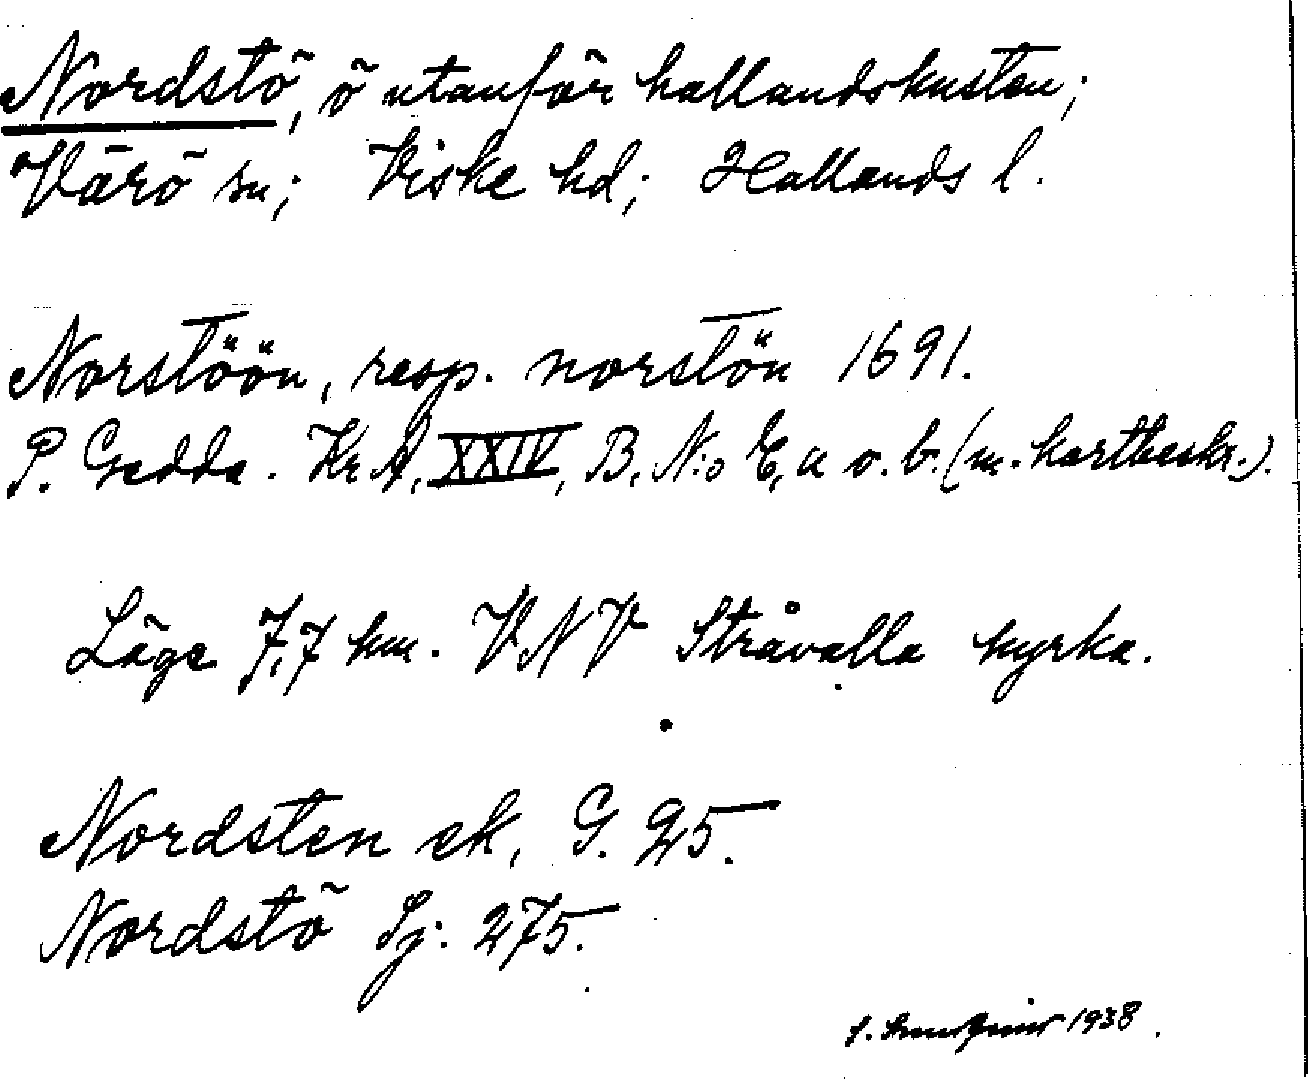 Nordstö, ö utanför hallandskusten;
Värö sn; Viske hd; Hallands l.
Norstöön, resp. norstön 1691.
P. Gedda. Kr A, XXIV, B. N:o E, a o. b. (m. kartbeskr.).
Läge 7,7 km. VNV Stråvalla kyrka.
Nordsten ek, G. 95.
Nordstö Sj. 275.
1938.